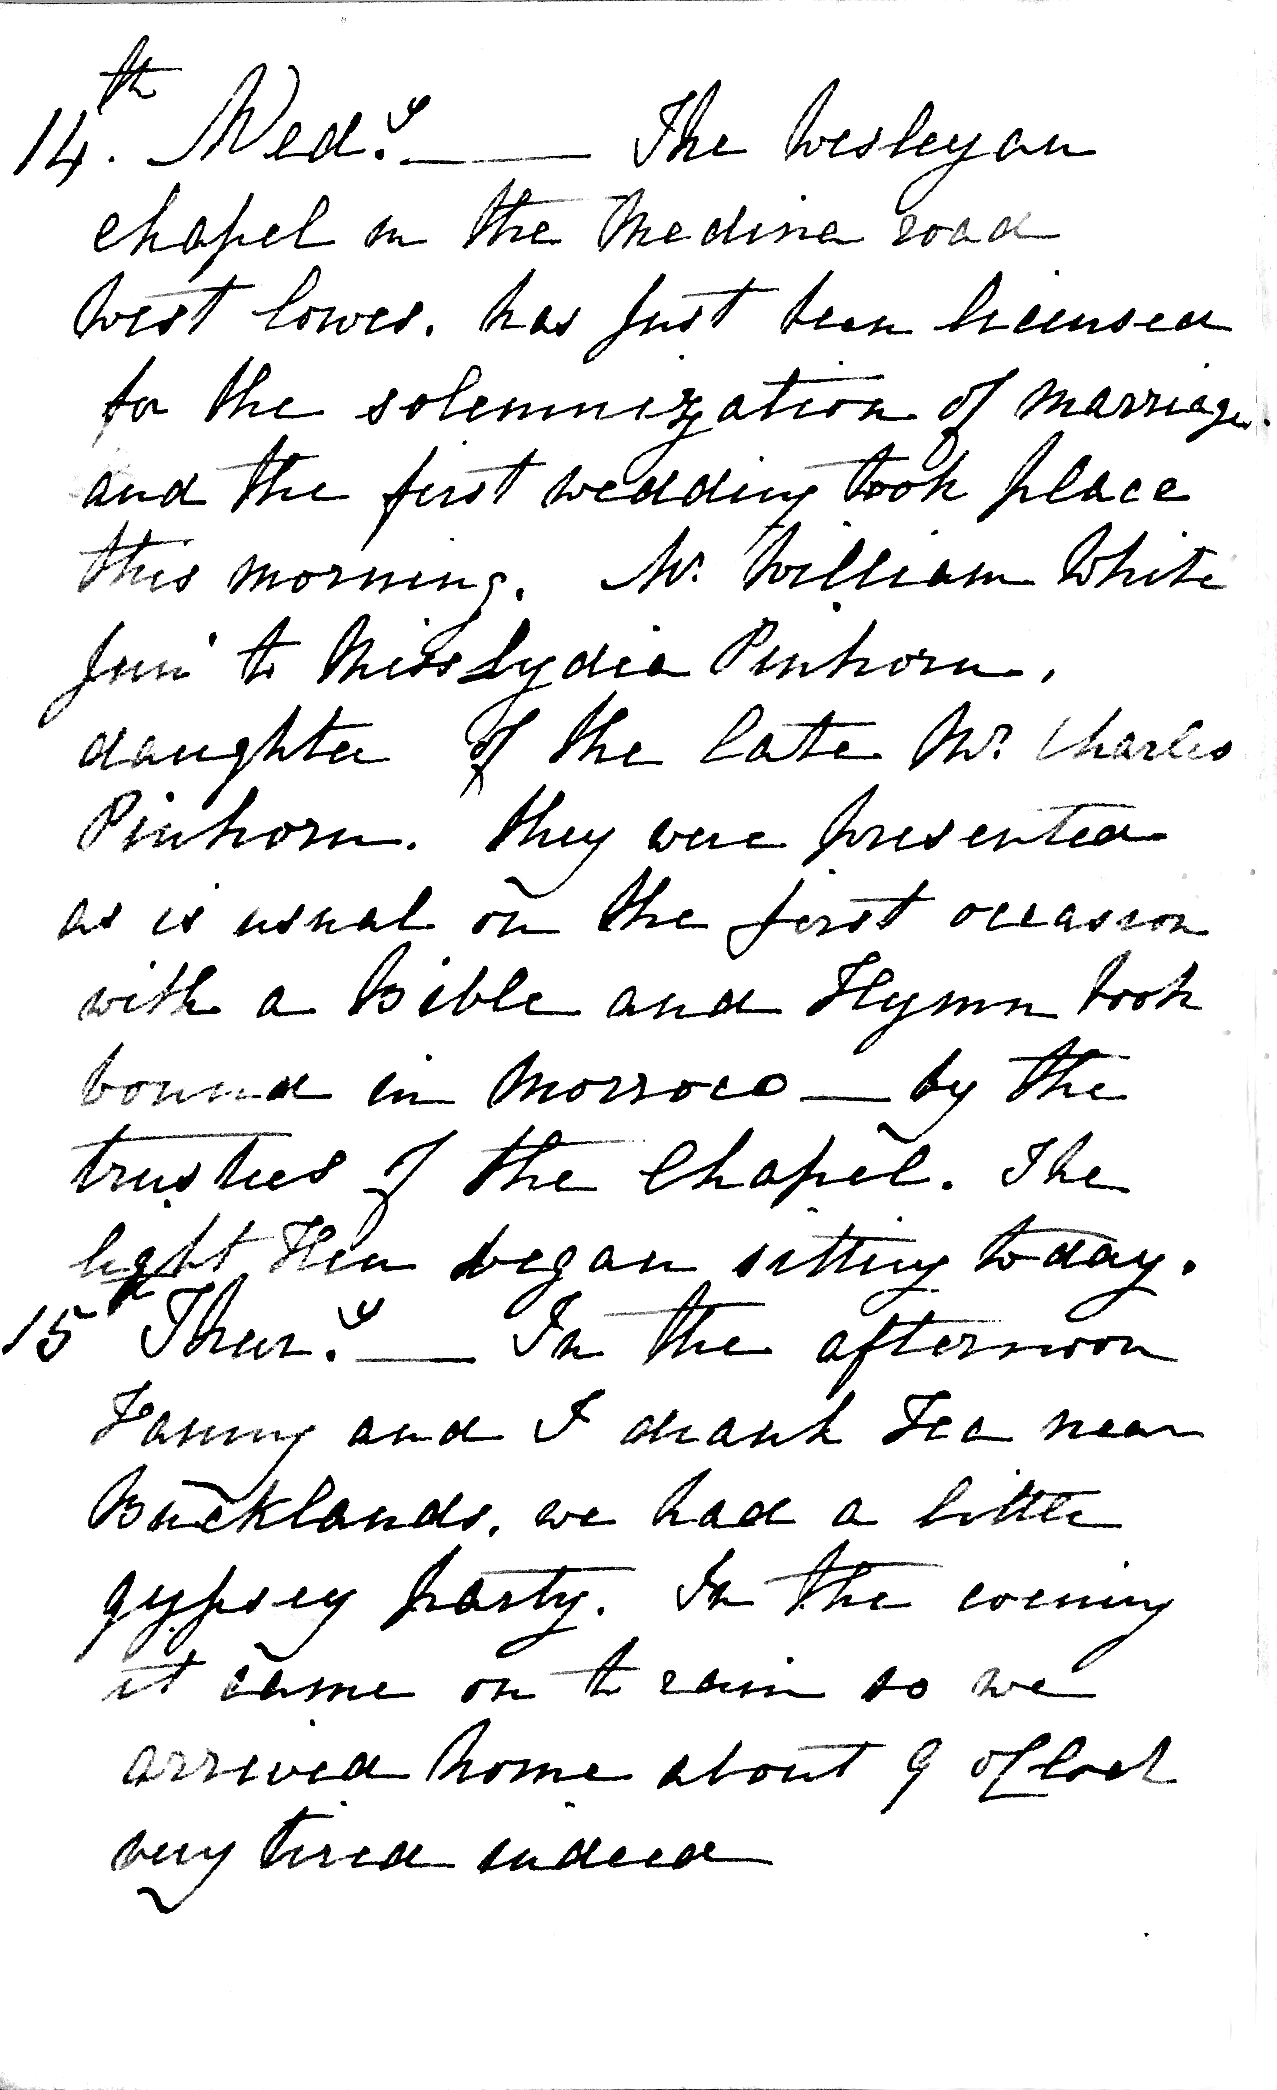 14th. Wedy. — The Wesleyan
chapel in the Medina road
West Cowes. has just been licensed
for the solemnization of marriage.
and the first wedding took place
this morning. Mr. William White
Junr to Miss Lydia Pinhorn,
daughter of the late Mr. Charles
Pinhorn. they were presented
as is usual on the first occasion
with a Bible and Hymn book
bound in Morroco — by the
trustees of the Chapel. The
light Hen began sitting today.
15th Thury. — In the afternoon
Fanny and I drank Tea near
Bucklands. we had a little
gypsey party. In the evening
it came on to rain so we
arrived home about 9 oClock
very tired indeed